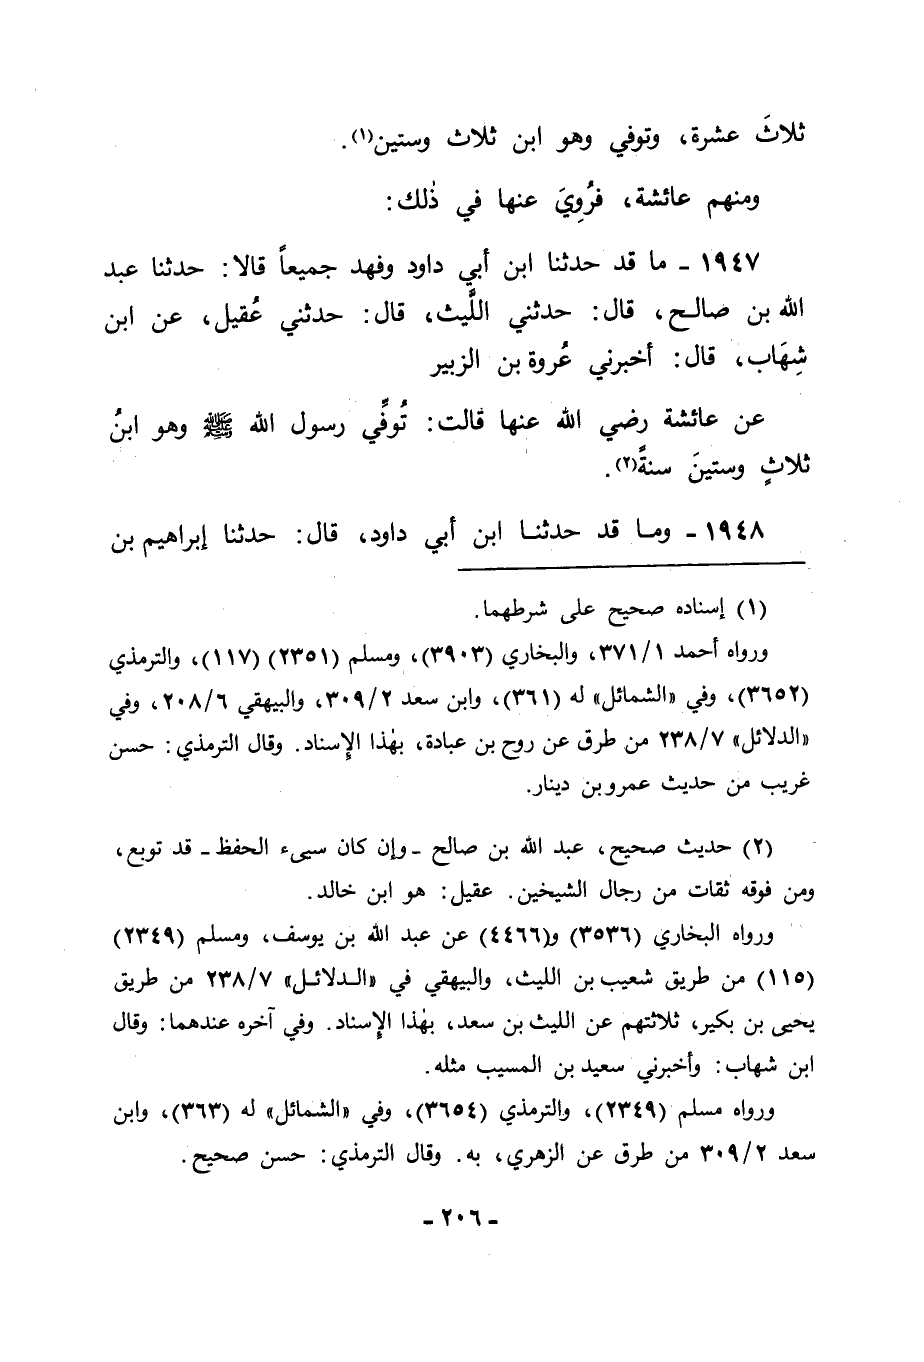 ثلاثَ عشرة، وتوفي وهو ابن ثلاث وستين(١).
ومنهم عائشة، فرُوِيَ عنها في ذٰلك:
١٩٤٧ ـ ما قد حدثنا ابن أبي داود وفهد جميعاً قالا: حدثنا عبد
الله بن صالح، قال: حدثني اللَّيث، قال: حدثني عُقيل، عن ابن
شِهَاب، قال: أخبرني عُروة بن الزبير
عن عائشة رضي الله عنها قالت: تُوفِّي رسول الله ﷺ وهو ابنُ
ثلاثٍ وستينَ سنةً(٢).
١٩٤٨ ـ وما قد حدثنا ابن أبي داود، قال: حدثنا إبراهيم بن
(١) إسناده صحيح على شرطهما.
ورواه أحمد ٣٧١/١، والبخاري (٣٩٠٣)، ومسلم (٢٣٥١) (١١٧)، والترمذي
(٣٦٥٢)، وفي «الشمائل» له (٣٦١)، وابن سعد ٣٠٩/٢، والبيهقي ٢٠٨/٦، وفي
«الدلائل» ٢٣٨/٧ من طرق عن روح بن عبادة، بهٰذا الإسناد. وقال الترمذي: حسن
غريب من حديث عمرو بن دينار.
(٢) حديث صحيح، عبد الله بن صالح ـ وإن كان سيىء الحفظ ـ قد توبع،
ومن فوقه ثقات من رجال الشيخين. عقيل: هو ابن خالد.
ورواه البخاري (٣٥٣٦) و(٤٤٦٦) عن عبد الله بن يوسف، ومسلم (٢٣٤٩)
(١١٥) من طريق شعيب بن الليث، والبيهقي في «الدلائل» ٢٣٨/٧ من طريق
يحيى بن بكير، ثلاثتهم عن الليث بن سعد، بهٰذا الإسناد. وفي آخره عندهما: وقال
ابن شهاب: وأخبرني سعيد بن المسيب مثله.
ورواه مسلم (٢٣٤٩)، والترمذي (٣٦٥٤)، وفي «الشمائل» له (٣٦٣)، وابن
سعد ٣٠٩/٢ من طرق عن الزهري، به. وقال الترمذي: حسن صحيح.
ـ ٢٠٦ ـ